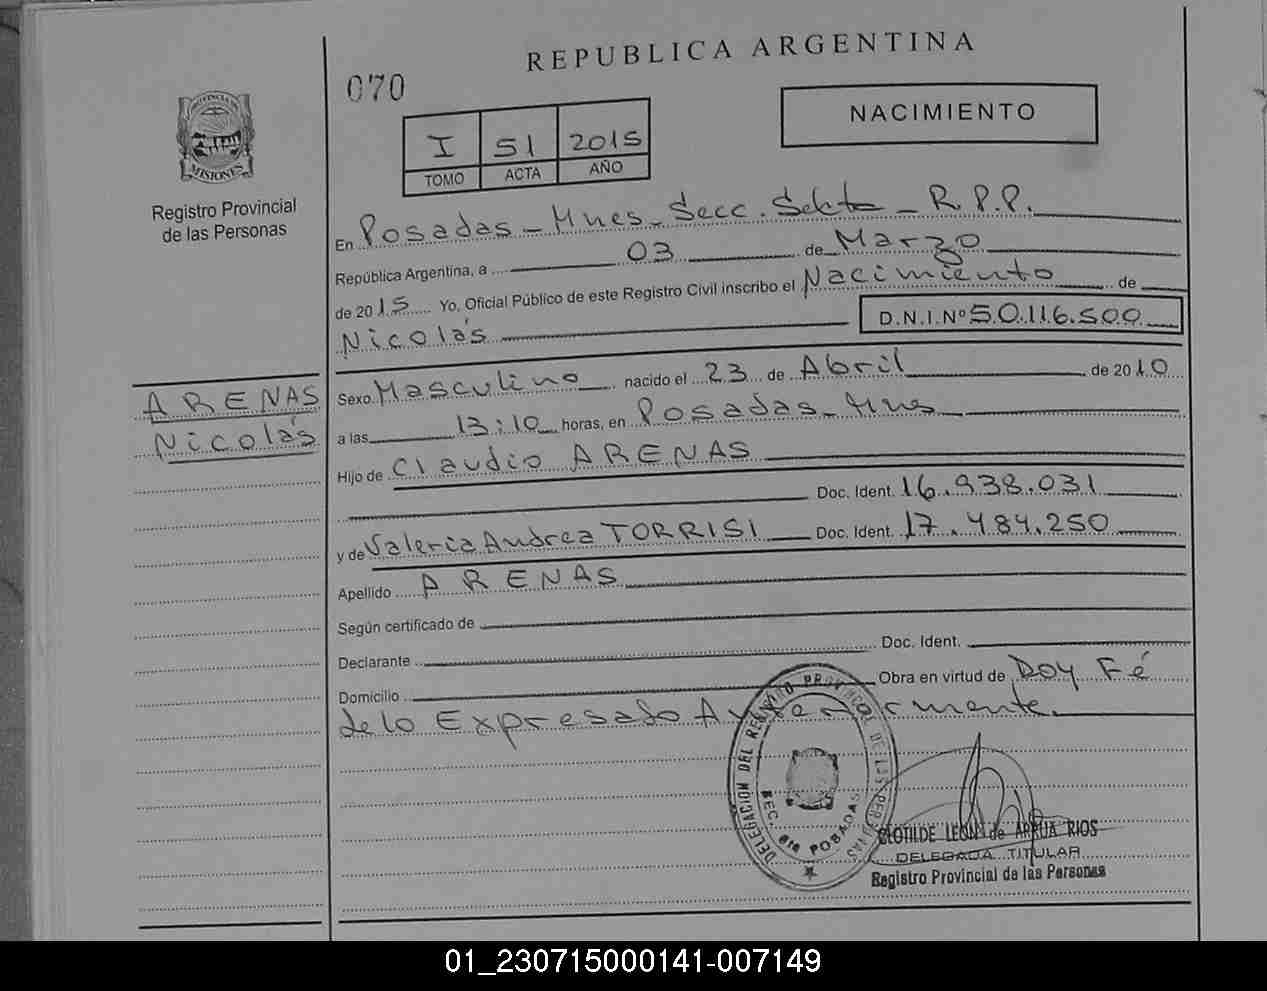 REPUBLICA ARGENTINA
070
NACIMIENTO
I 51 2015
TOMO ACTA AÑO
PROVINCIA DE
MISIONES
Registro Provincial
de las Personas
En Posadas - Mnes - Secc. Sexta - R.P.P.
República Argentina, a 03 de Marzo
de 2015 Yo, Oficial Público de este Registro Civil inscribo el Nacimiento de
Nicolás D.N.I.Nº 50.116.500
ARENAS
Nicolás
Sexo Masculino nacido el 23 de Abril de 2010
a las 13:10 horas, en Posadas - Mnes
Hijo de Claudio ARENAS
Doc. Ident. 16.938.031
y de Valeria Andrea TORRISI Doc. Ident. 17.484.250
Apellido ARENAS
Según certificado de
Declarante Doc. Ident.
Domicilio Obra en virtud de Doy Fé
de lo Expresado Anteriormente.
DELEGACION DEL REGISTRO PROVINCIAL DE LAS PERSONAS
SEC. 6ta POSADAS
CLOTILDE LEON de ARRUA RIOS
DELEGADA TITULAR
Registro Provincial de las Personas
01_230715000141-007149